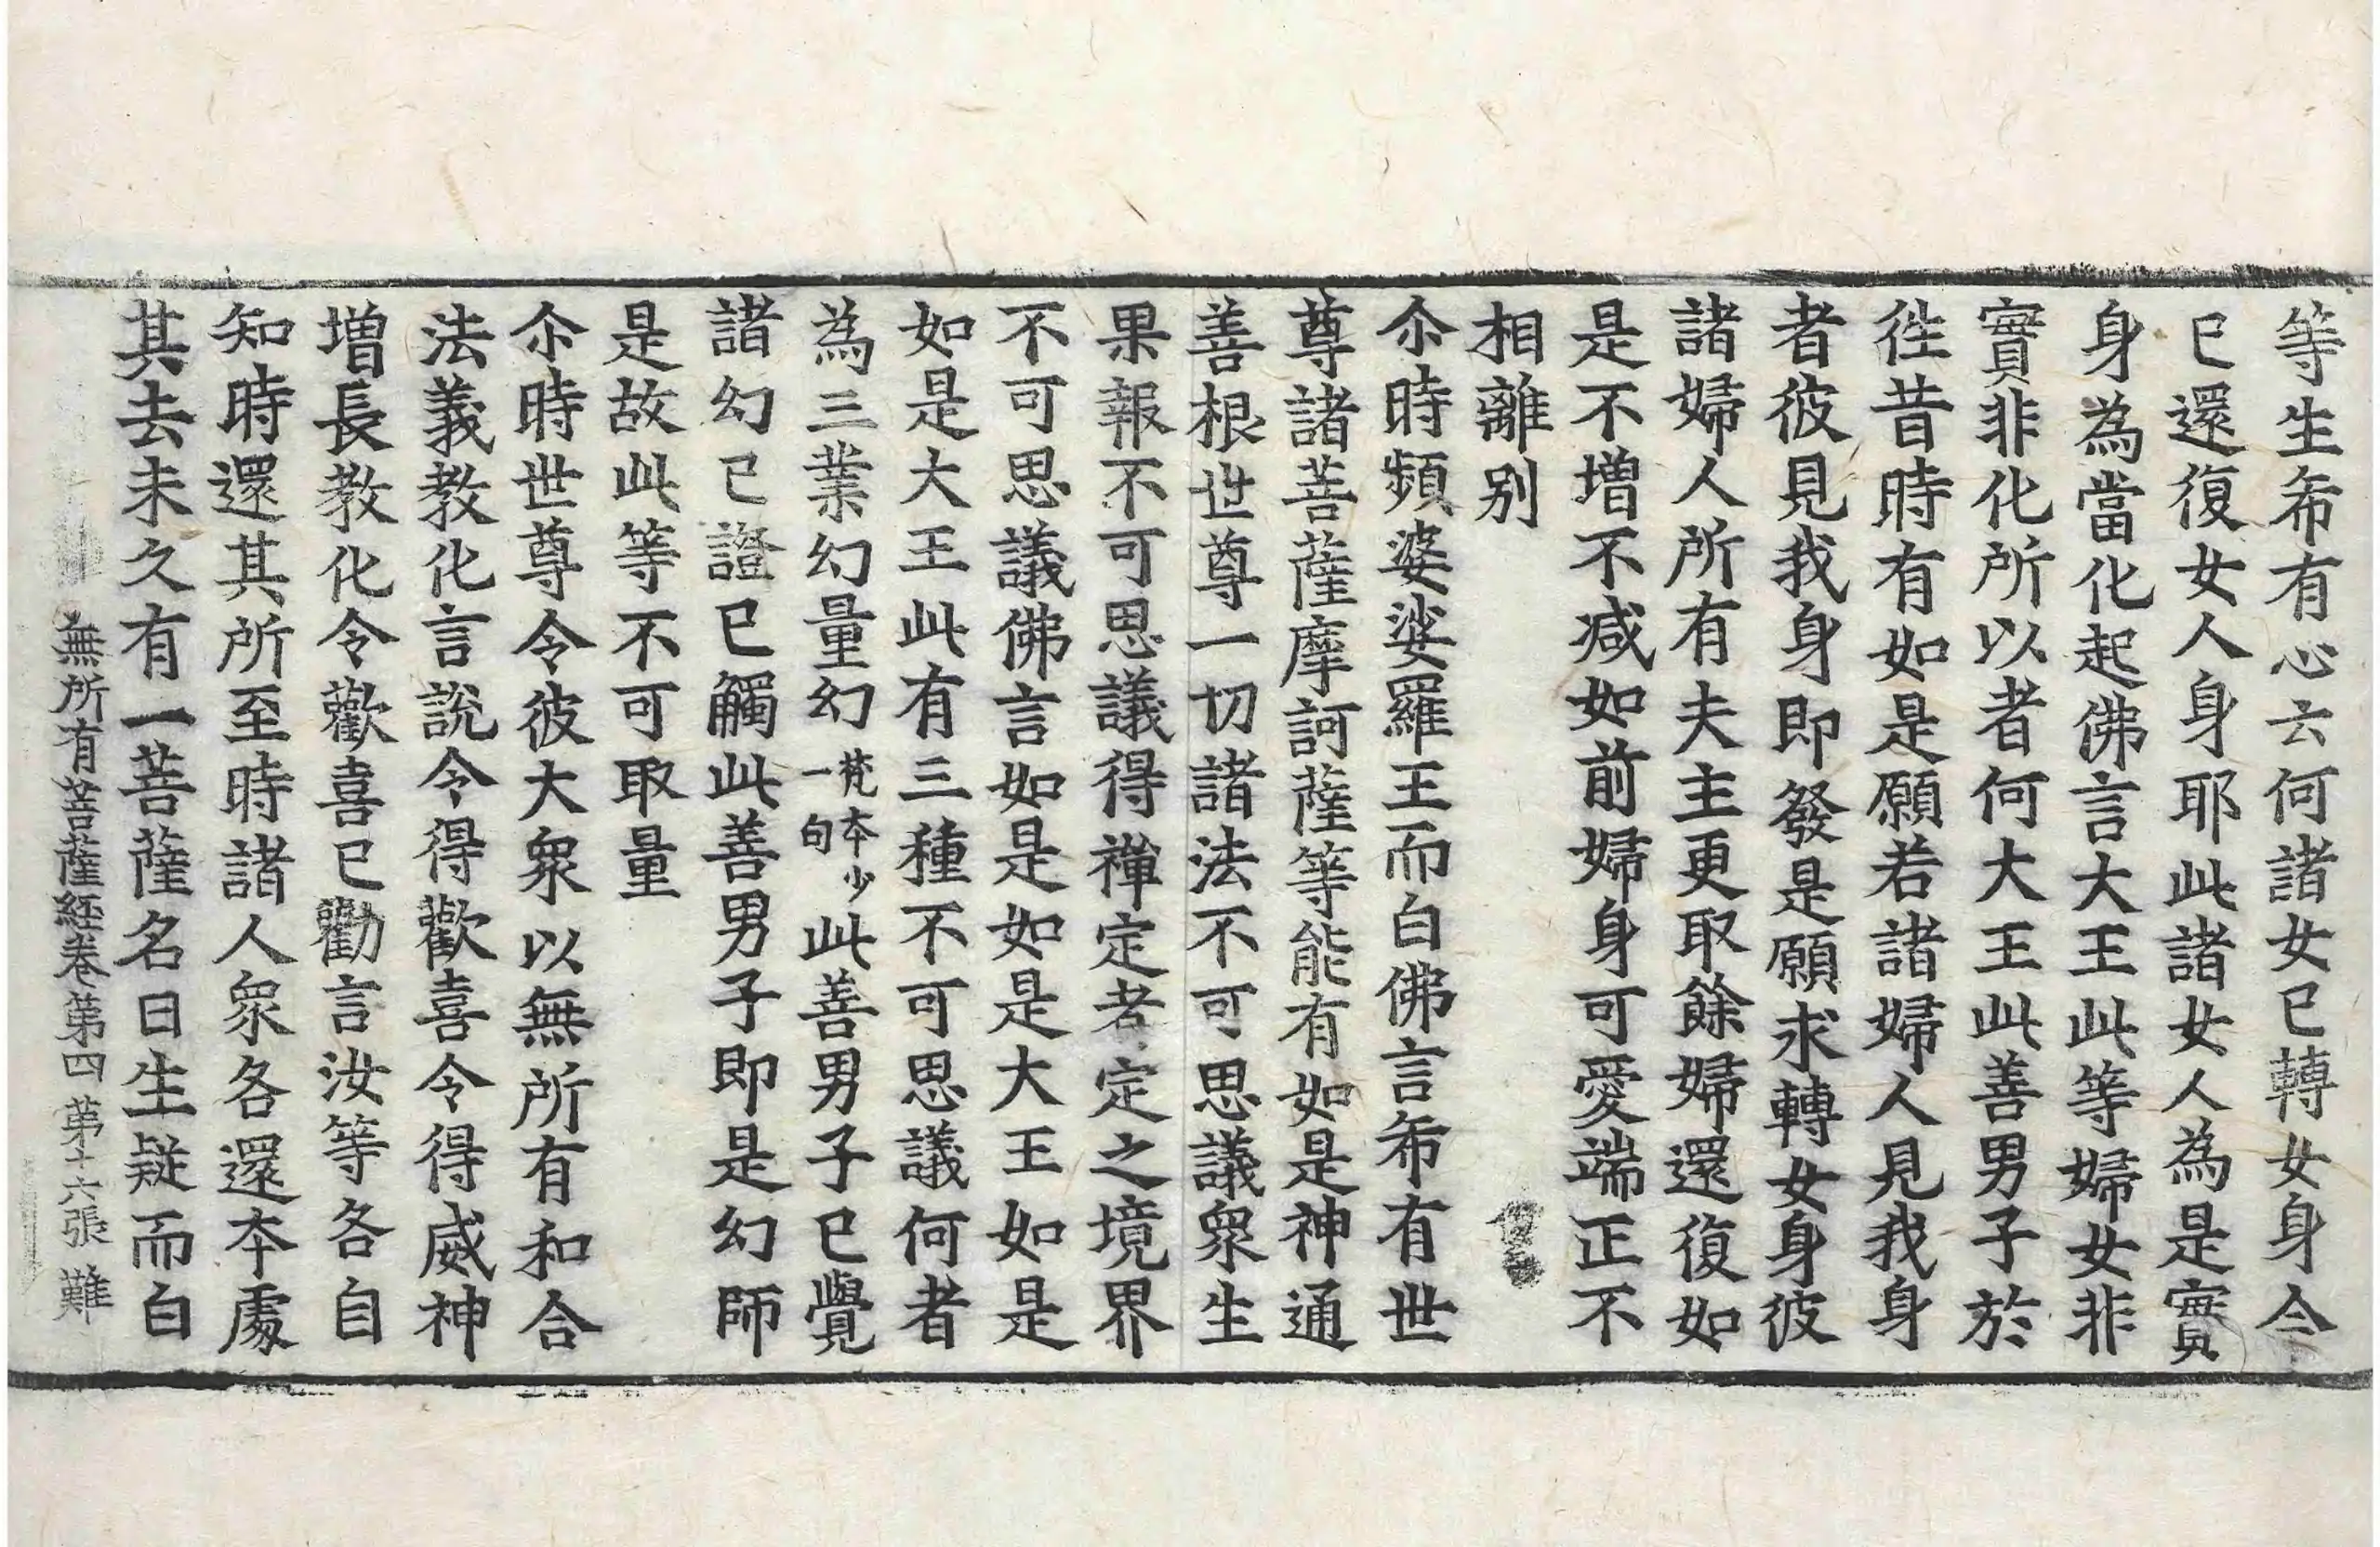 等生希有心云何諸女已轉女身今
已還復女人身耶此諸女人為是實
身為當化起佛言大王此等婦女非
實非化所以者何大王此善男子於
徃昔時有如是願若諸婦人見我身
者彼見我身即發是願求轉女身彼
諸婦人所有夫主更取餘婦還復如
是不增不减如前婦身可愛端正不
相離别
尒時頻婆娑羅王而白佛言希有世
尊諸菩薩摩訶薩等能有如是神通
善根世尊一切諸法不可思議衆生
果報不可思議得禪定者定之境界
不可思議佛言如是如是大王如是
如是大王此有三種不可思議何者
為三業幻量幻梵本少一句此善男子已覺
諸幻已證已觸此善男子即是幻師
是故此等不可取量
尒時世尊令彼大衆以無所有和合
法義教化言說令得歡喜令得威神
增長教化令歡喜已勸言汝等各自
知時還其所至時諸人衆各還本處
其去未久有一菩薩名曰生疑而白
無所有菩薩經卷第四 第十六張 難